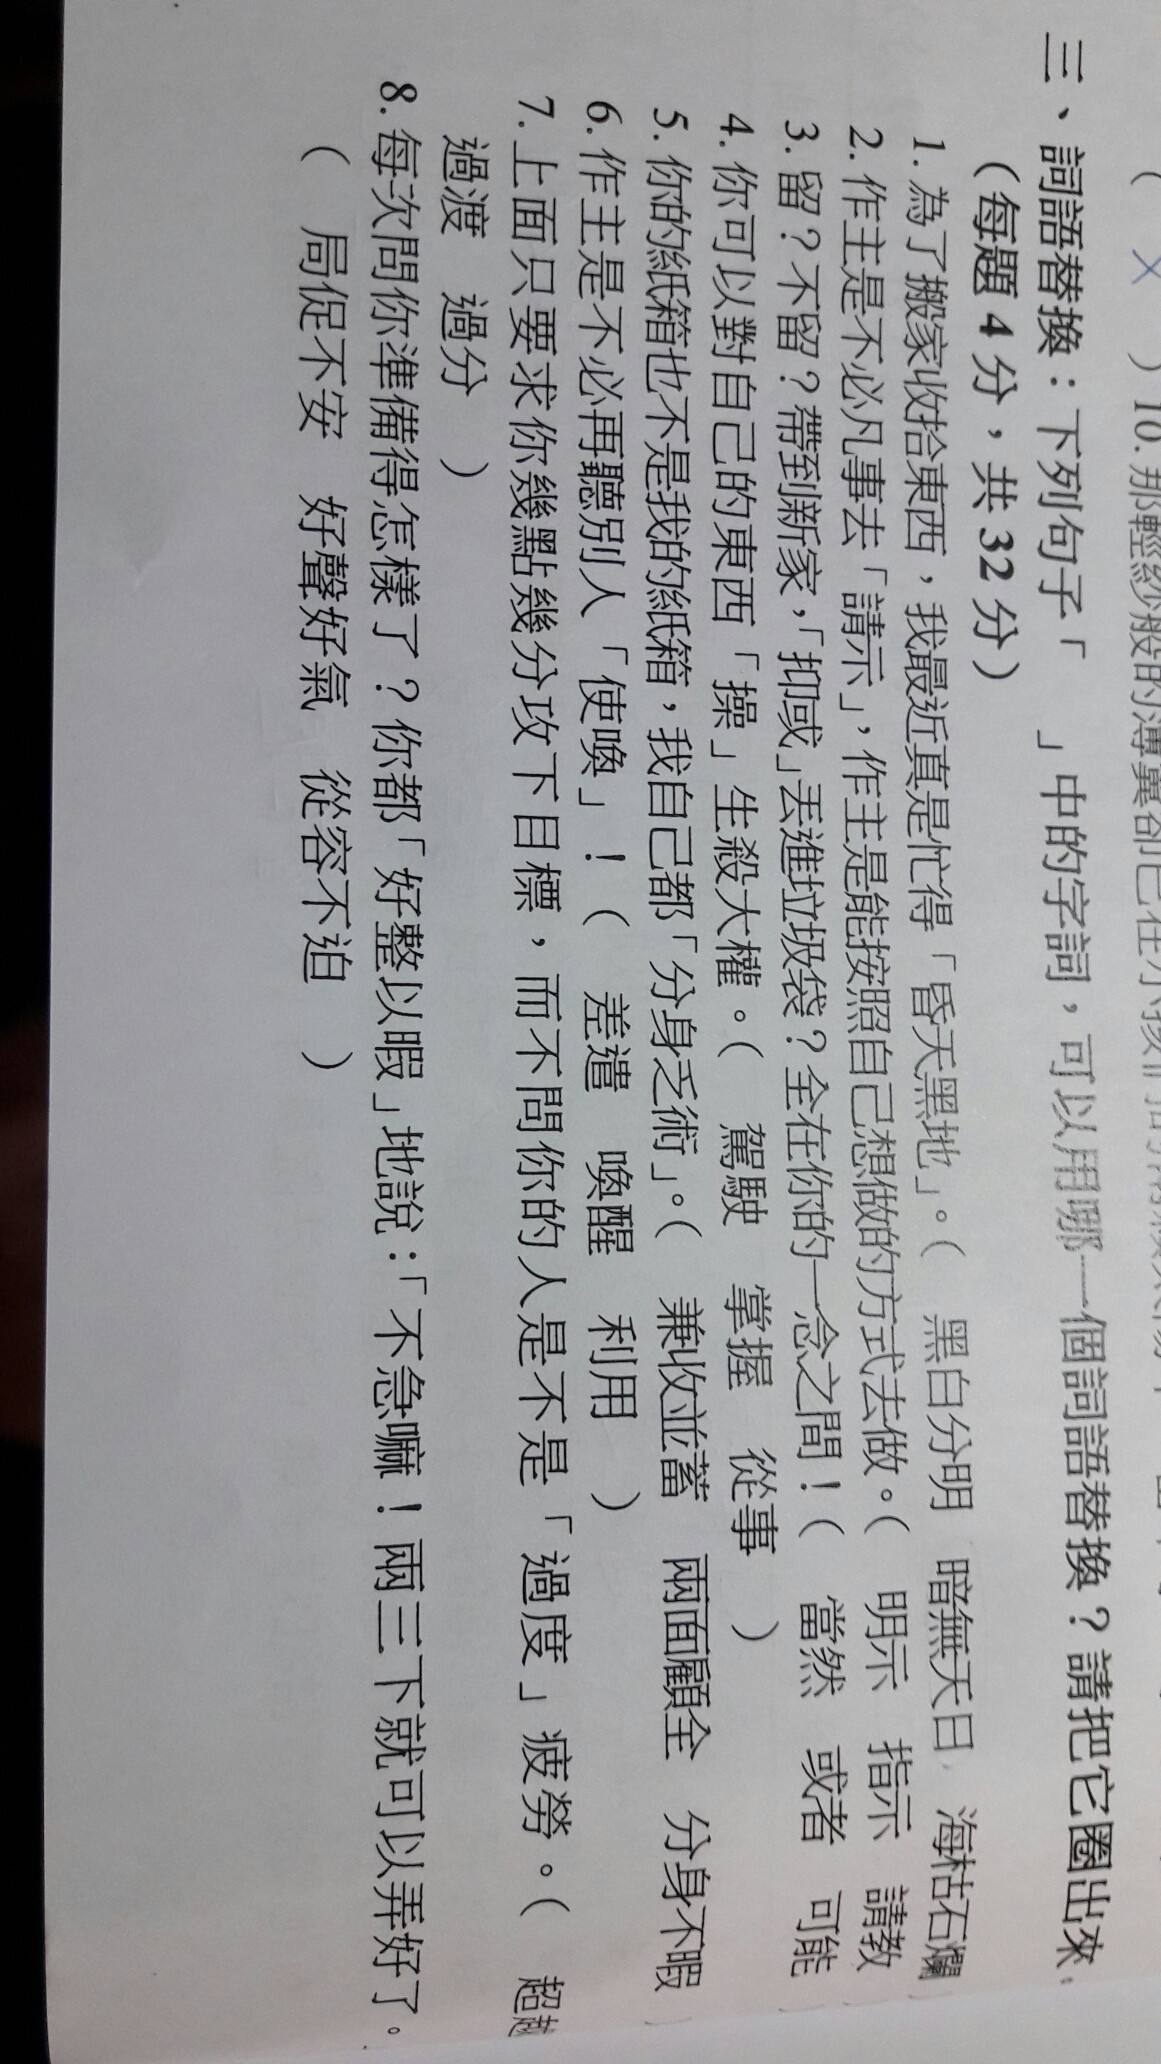 ( X ) 10. 那輕紗般的薄翼卻已在小孩
三、詞語替換：下列句子「　」中的字詞，可以用哪一個詞語替換？請把它圈出來。
（每題 4 分，共 32 分）
1. 為了搬家收拾東西，我最近真是忙得「昏天黑地」。（ 黑白分明 暗無天日 海枯石爛
2. 作主是不必凡事去「請示」，作主是能按照自己想做的方式去做。（ 明示 指示 請教
3. 留？不留？帶到新家，「抑或」丟進垃圾袋？全在你的一念之間！（ 當然 或者 可能
4. 你可以對自己的東西「操」生殺大權。（ 駕駛 掌握 從事 ）
5. 你的紙箱也不是我的紙箱，我自己都「分身乏術」。（ 兼收並蓄 兩面顧全 分身不暇
6. 作主是不必再聽別人「使喚」！（ 差遣 喚醒 利用 ）
7. 上面只要求你幾點幾分攻下目標，而不問你的人是不是「過度」疲勞。（ 超越
過渡 過分 ）
8. 每次問你準備得怎樣了？你都「好整以暇」地說：「不急嘛！兩三下就可以弄好了。
（ 局促不安 好聲好氣 從容不迫 ）